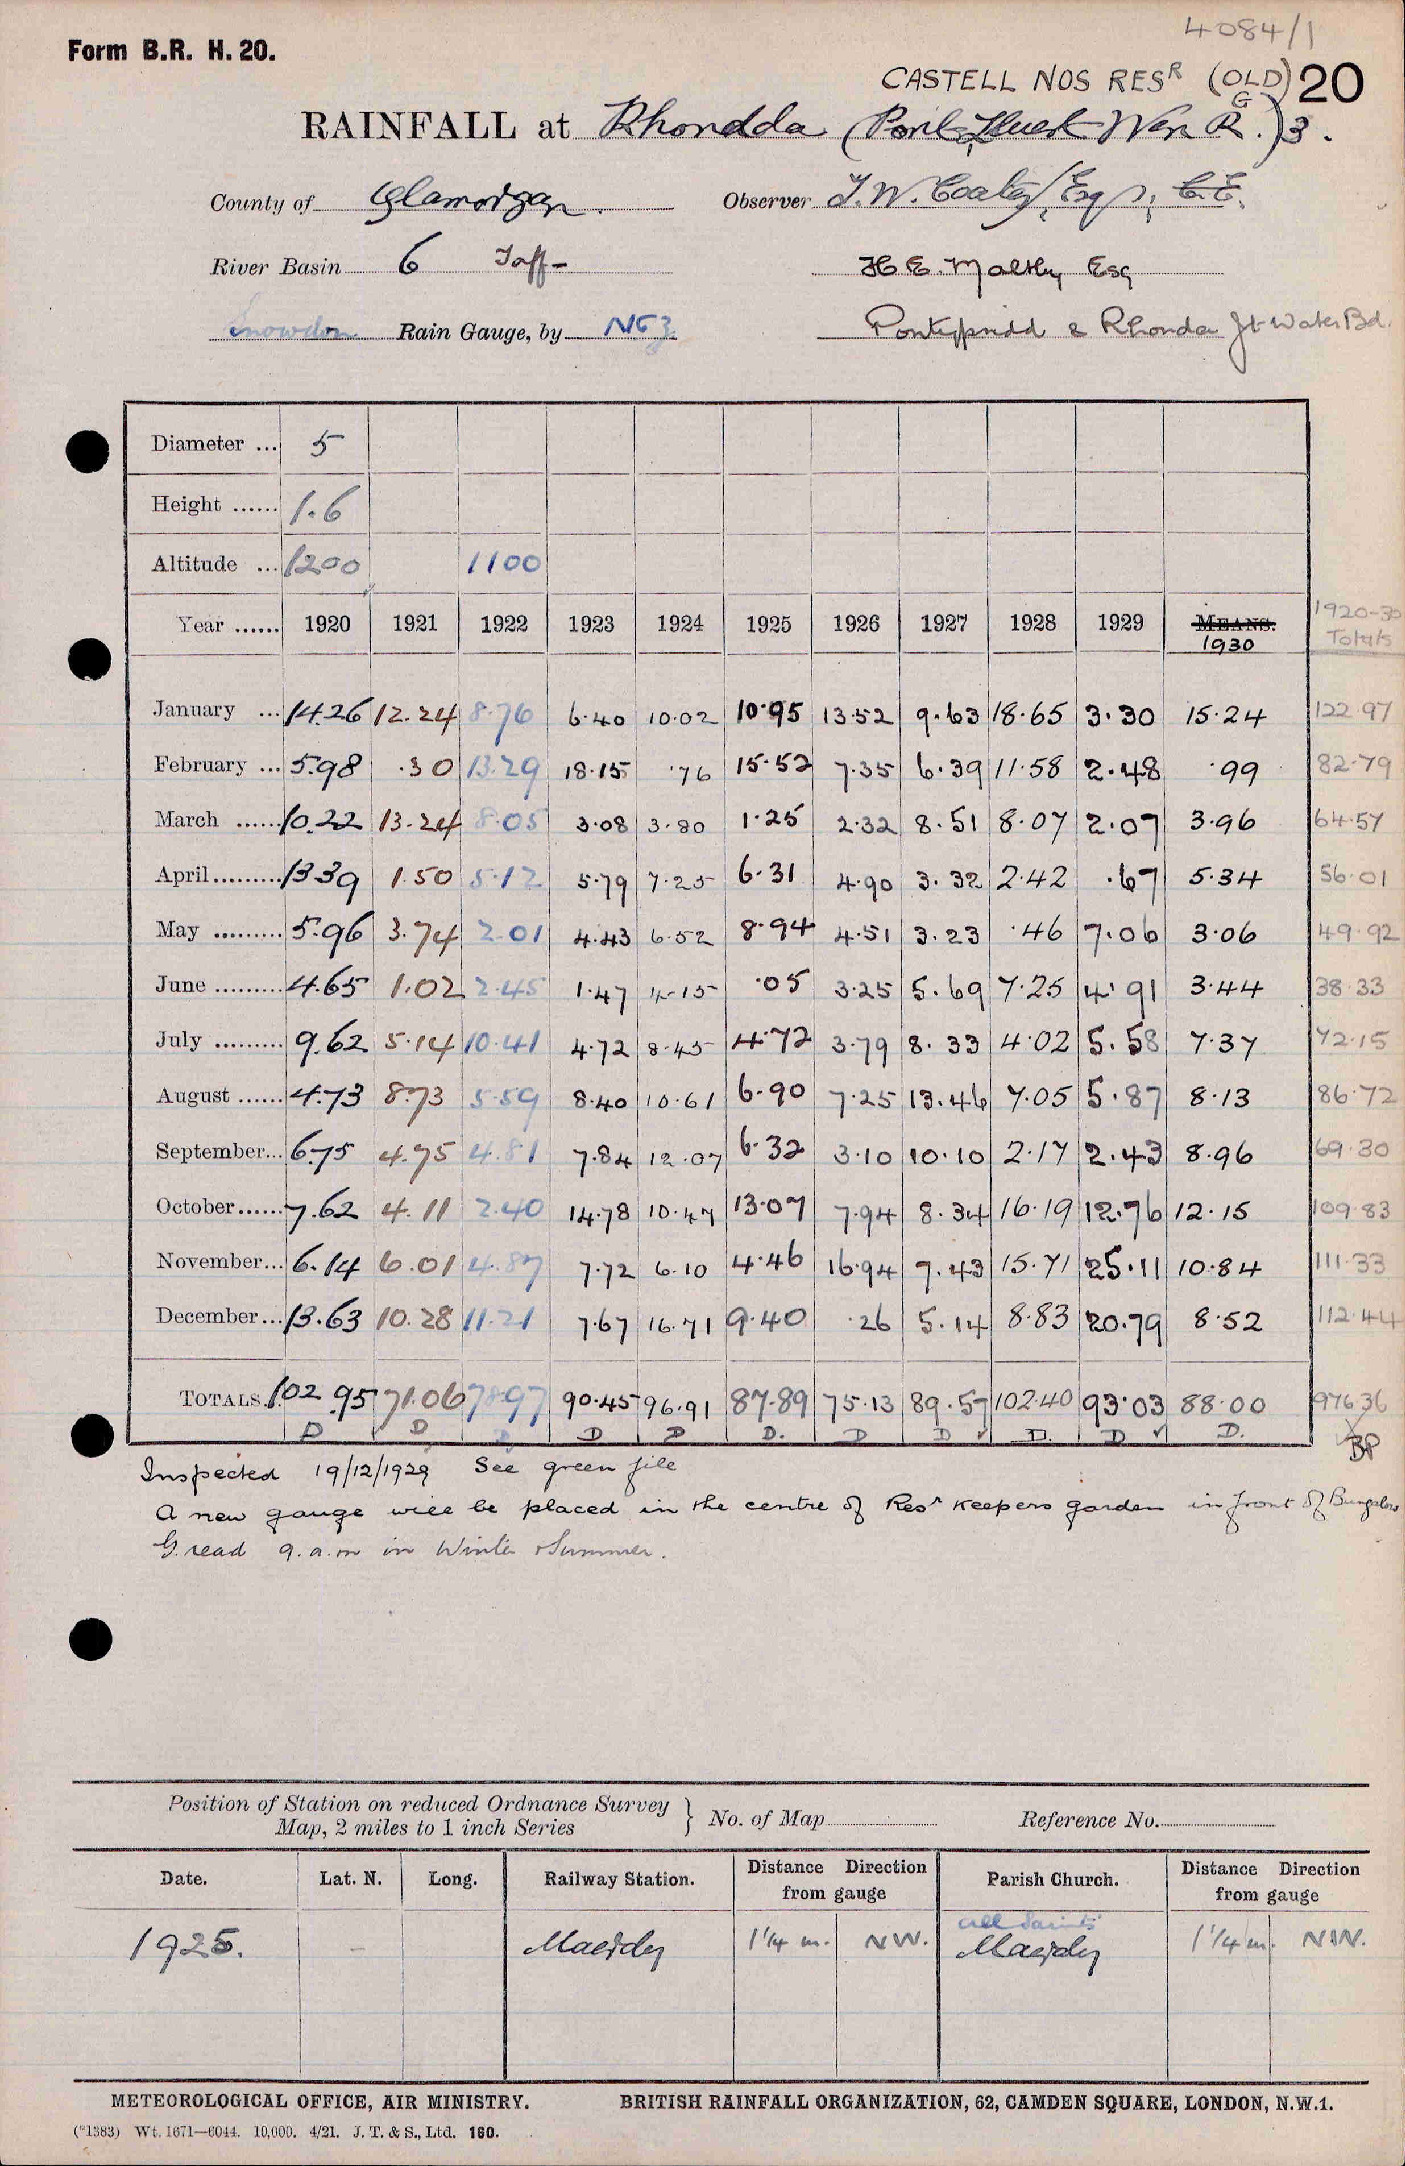 4084/1
Form B.R. H. 20.
CASTELL NOS RESR (OLD G) 20
RAINFALL at Rhondda ( R.) 3.
County of Glamorgan. Observer T. W. Esq., C.E.
River Basin 6 Taff- H E. Maltby Esq
Snowdon Rain Gauge, by NGZ. Pontypridd & Rhonda Jt Water Bd.
Diameter ... 5
Height ...... 1.6
Altitude ... 1200 1100
Year ...... 1920 1921 1922 1923 1924 1925 1926 1927 1928 1929 MEANS. 1930 1920-30 Totals
January ... 14.26 12.24 8.76 6.40 10.02 10.95 13.52 9.63 18.65 3.30 15.24 122.97
February ... 5.98 .30 13.29 18.15 .76 15.52 7.35 6.39 11.58 2.48 .99 82.79
March ...... 10.22 13.24 8.05 3.08 3.80 1.25 2.32 8.51 8.07 2.07 3.96 64.57
April ......... 13.39 1.50 5.12 5.79 7.25 6.31 4.90 3.32 2.42 .67 5.34 56.01
May ......... 5.96 3.74 2.01 4.43 6.52 8.94 4.51 3.23 .46 7.06 3.06 49.92
June ......... 4.65 1.02 2.45 1.47 4.15 .05 3.25 5.69 7.25 4.91 3.44 38.33
July ......... 9.62 5.14 10.41 4.72 8.45 4.72 3.79 8.33 4.02 5.58 7.37 72.15
August ...... 4.73 8.73 5.59 8.40 10.61 6.90 7.25 13.46 7.05 5.87 8.13 86.72
September... 6.75 4.75 4.81 7.84 12.07 6.32 3.10 10.10 2.17 2.43 8.96 69.30
October...... 7.62 4.11 2.40 14.78 10.47 13.07 7.94 8.34 16.19 12.76 12.15 109.83
November... 6.14 6.01 4.87 7.72 6.10 4.46 16.94 7.43 15.71 25.11 10.84 111.33
December... 13.63 10.28 11.21 7.67 16.71 9.40 .26 5.14 8.83 20.79 8.52 112.44
TOTALS. 102.95 71.06 78.97 90.45 96.91 87.89 75.13 89.57 102.40 93.03 88.00 976.36
D D D D D D. D D ✓ D. D ✓ D. BP
Inspected 19/12/1929 See green file
A new gauge will be placed in the centre of Resr Keepers garden in front of Bungalow
G. read 9. a.m in Winter & Summer.
Position of Station on reduced Ordnance Survey
Map, 2 miles to 1 inch Series } No. of Map Reference No.
Date. Lat. N. Long. Railway Station. Distance Direction from gauge Parish Church. Distance Direction from gauge
All Saints
1925. - Maerdy 1 1/4 m. NW. Maerdy 1 1/4 m. NW.
METEOROLOGICAL OFFICE, AIR MINISTRY. BRITISH RAINFALL ORGANIZATION, 62, CAMDEN SQUARE, LONDON, N.W.1.
(*1383) Wt. 1671—6044. 10,000. 4/21. J. T. & S., Ltd. 160.